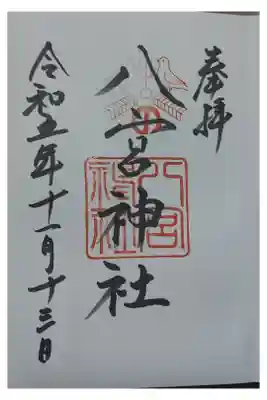 奉拝
八宮神社
令和五年十一月十三日
八宮神社